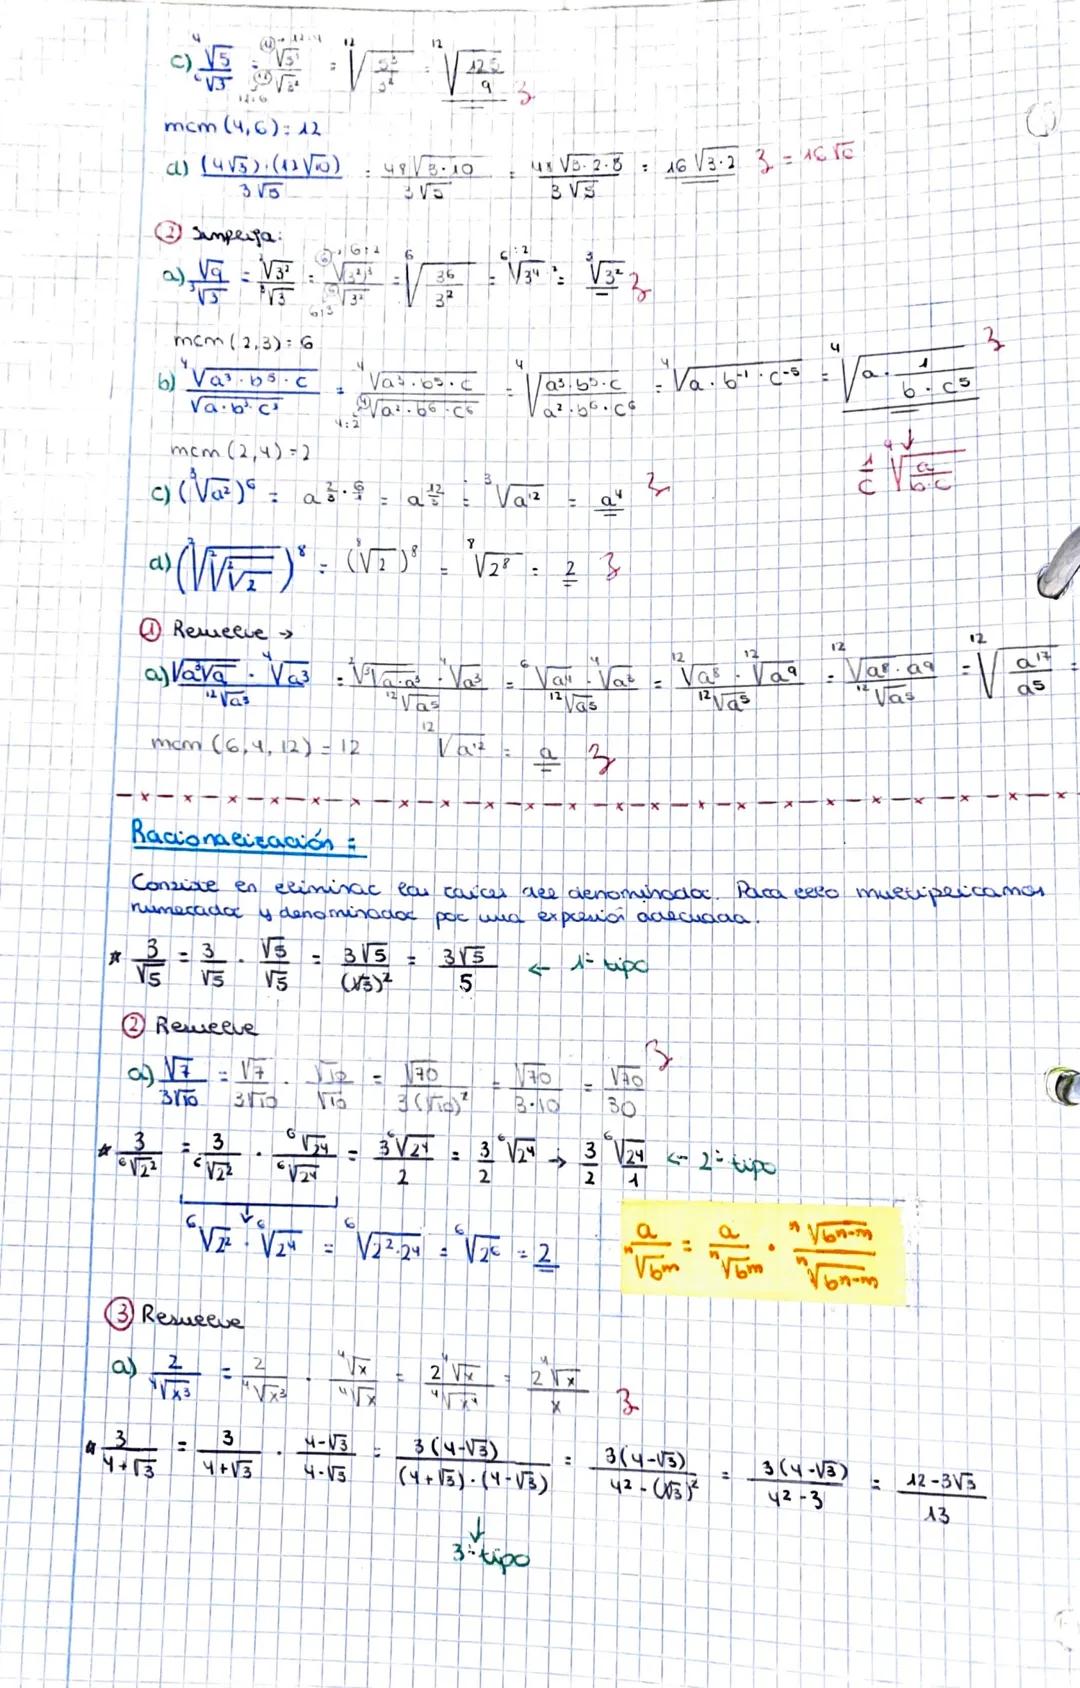 c) ⁴√5 / ⁶√3 = ¹²√5³ / ¹²√3² = ¹²√(5³/3²) = ¹²√(125/9)
mcm (4,6) = 12
d) (4√3)·(12√10) / 3√5 = 48√3·10 / 3√5 = 48√3·2·5 / 3√5 = 16√3·2 = 16√6
② Simplifica:
a) √9 / ³√3 = ²√3² / ³√3 = ⁶√(3²)³ / ⁶√3² = ⁶√(3⁶/3²) = ⁶√3⁴ = ³√3²
mcm (2,3) = 6
b) ⁴√a³·b⁵·c / √a·b³·c³ = ⁴√a³·b⁵·c / ⁴√a²·b⁶·c⁶ = ⁴√(a³·b⁵·c / a²·b⁶·c⁶) = ⁴√a·b⁻¹·c⁻⁵ = ⁴√(a· 1/(b·c⁵))
mcm (2,4) = 2
1/c ⁴√(a/b·c)
c) (³√a²)⁶ = a^(2/3 · 6/1) = a^(12/3) = ³√a¹² = a⁴
d) (²√²√²√2)⁸ = (⁸√2)⁸ = ⁸√2⁸ = 2
① Resuelve →
a) √a³√a · ⁴√a³ / ¹²√a⁵ = ²√³√a·a³ · ⁴√a³ / ¹²√a⁵ = ⁶√a⁴ · ⁴√a³ / ¹²√a⁵ = ¹²√a⁸ · ¹²√a⁹ / ¹²√a⁵ = ¹²√a⁸·a⁹ / ¹²√a⁵ = ¹²√(a¹⁷/a⁵) =
mcm (6,4,12) = 12 ¹²√a¹² = a
Racionalización:
Consiste en eliminar las raíces del denominador. Para ello multiplicamos
numerador y denominador por una expresión adecuada.
* 3/√5 = 3/√5 · √5/√5 = 3√5/(√5)² = 3√5/5 ← 1º tipo
② Resuelve
a) √7/3√10 = √7/3√10 · √10/√10 = √70/3(√10)² = √70/3·10 = √70/30
* 3/⁶√2² = 3/⁶√2² · ⁶√2⁴/⁶√2⁴ = 3⁶√2⁴/2 = 3/2 ⁶√2⁴ → 3/2 ⁶√2⁴/1 ← 2º tipo
⁶√2² · ⁶√2⁴ = ⁶√2²·2⁴ = ⁶√2⁶ = 2
a/ⁿ√bᵐ = a/ⁿ√bᵐ · ⁿ√bⁿ⁻ᵐ/ⁿ√bⁿ⁻ᵐ
③ Resuelve
a) 2/⁴√x³ = 2/⁴√x³ · ⁴√x/⁴√x = 2⁴√x/⁴√x⁴ = 2⁴√x/x
* 3/4+√3 = 3/4+√3 · 4-√3/4-√3 = 3(4-√3)/(4+√3)·(4-√3) = 3(4-√3)/4²-(√3)² = 3(4-√3)/4²-3 = 12-3√3/13
↓
3º tipo